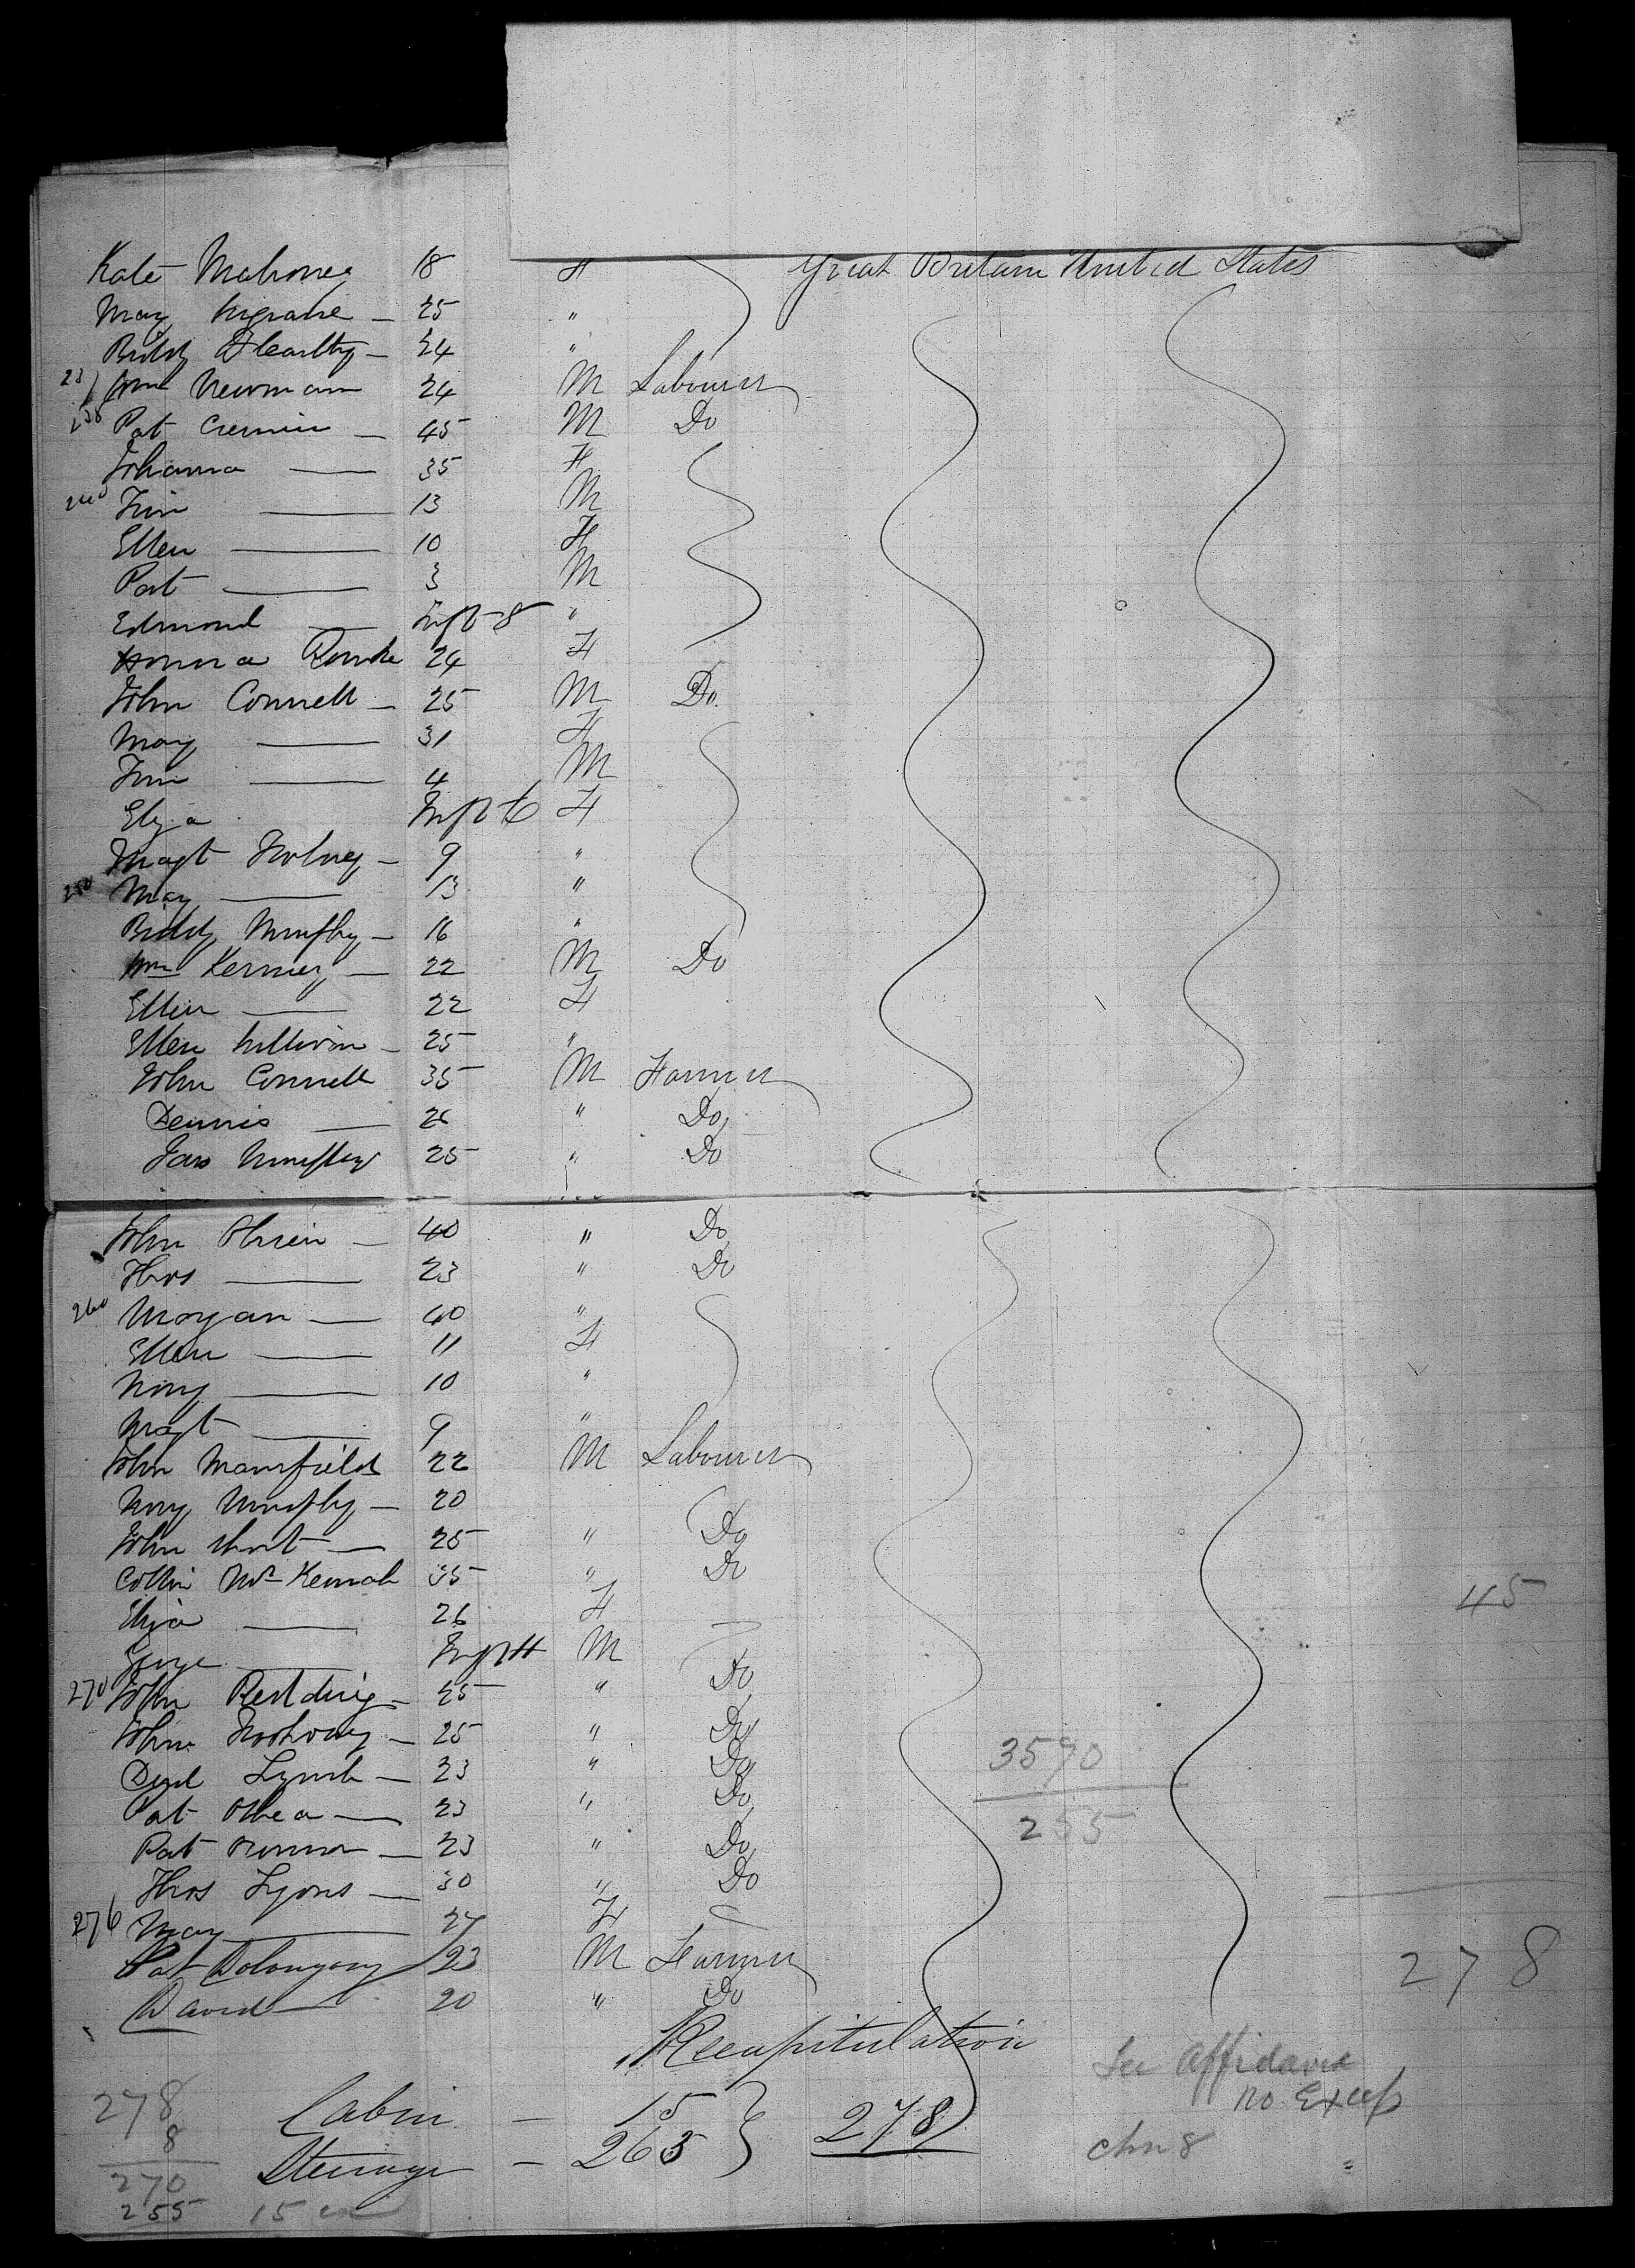 Kate Mahoney 18 F Great Britain United States
May 25 "
Biddy 24 "
Wm Newman 24 M Labourer
238 Pat Cremin — 45 M Do
Johanna — 35 F
240 Jim — 13 M
Ellen — 10 F
Pat — 3 M
Edmond — Inft 8 "
Honora Rourke 24 F
John Connell — 25 M Do
May — 31 F
Jim — 4 M
Eliza Inft 6 F
Magt — 9 "
250 May — 13 "
Biddy Murphy — 16 "
Wm — 22 M Do
Ellen — 22 F
Ellen Sullivan — 25 "
John Connell 35 M Farmer
Dennis — 26 " Do
Jas Murphy 25 " Do
John Obrien — 40 " Do
Thos — 23 " Do
260 Morgan — 40 "
Ellen — 11 F
Nory — 10 "
Magt — 9 "
John Mansfield 22 M Labourer
Nory Murphy — 20
John — 25 " Do
Collin 35 " Do
Eliza — 26 F
George — Inft M
270 John Redding — 25 " Do
John — 25 " Do
Lynch — 23 " Do
Pat OShea — 23 " Do
Pat — 23 " Do
Thos Lyons — 30 " Do
276 May — 27 F
Pat 23 M Farmer
David — 20 " Do
45
3590
255
278
Recapitulation
Cabin — 15 } 278
Steerage — 263
See Affidavit
no Excess
chn 8
278
8
270
255 15